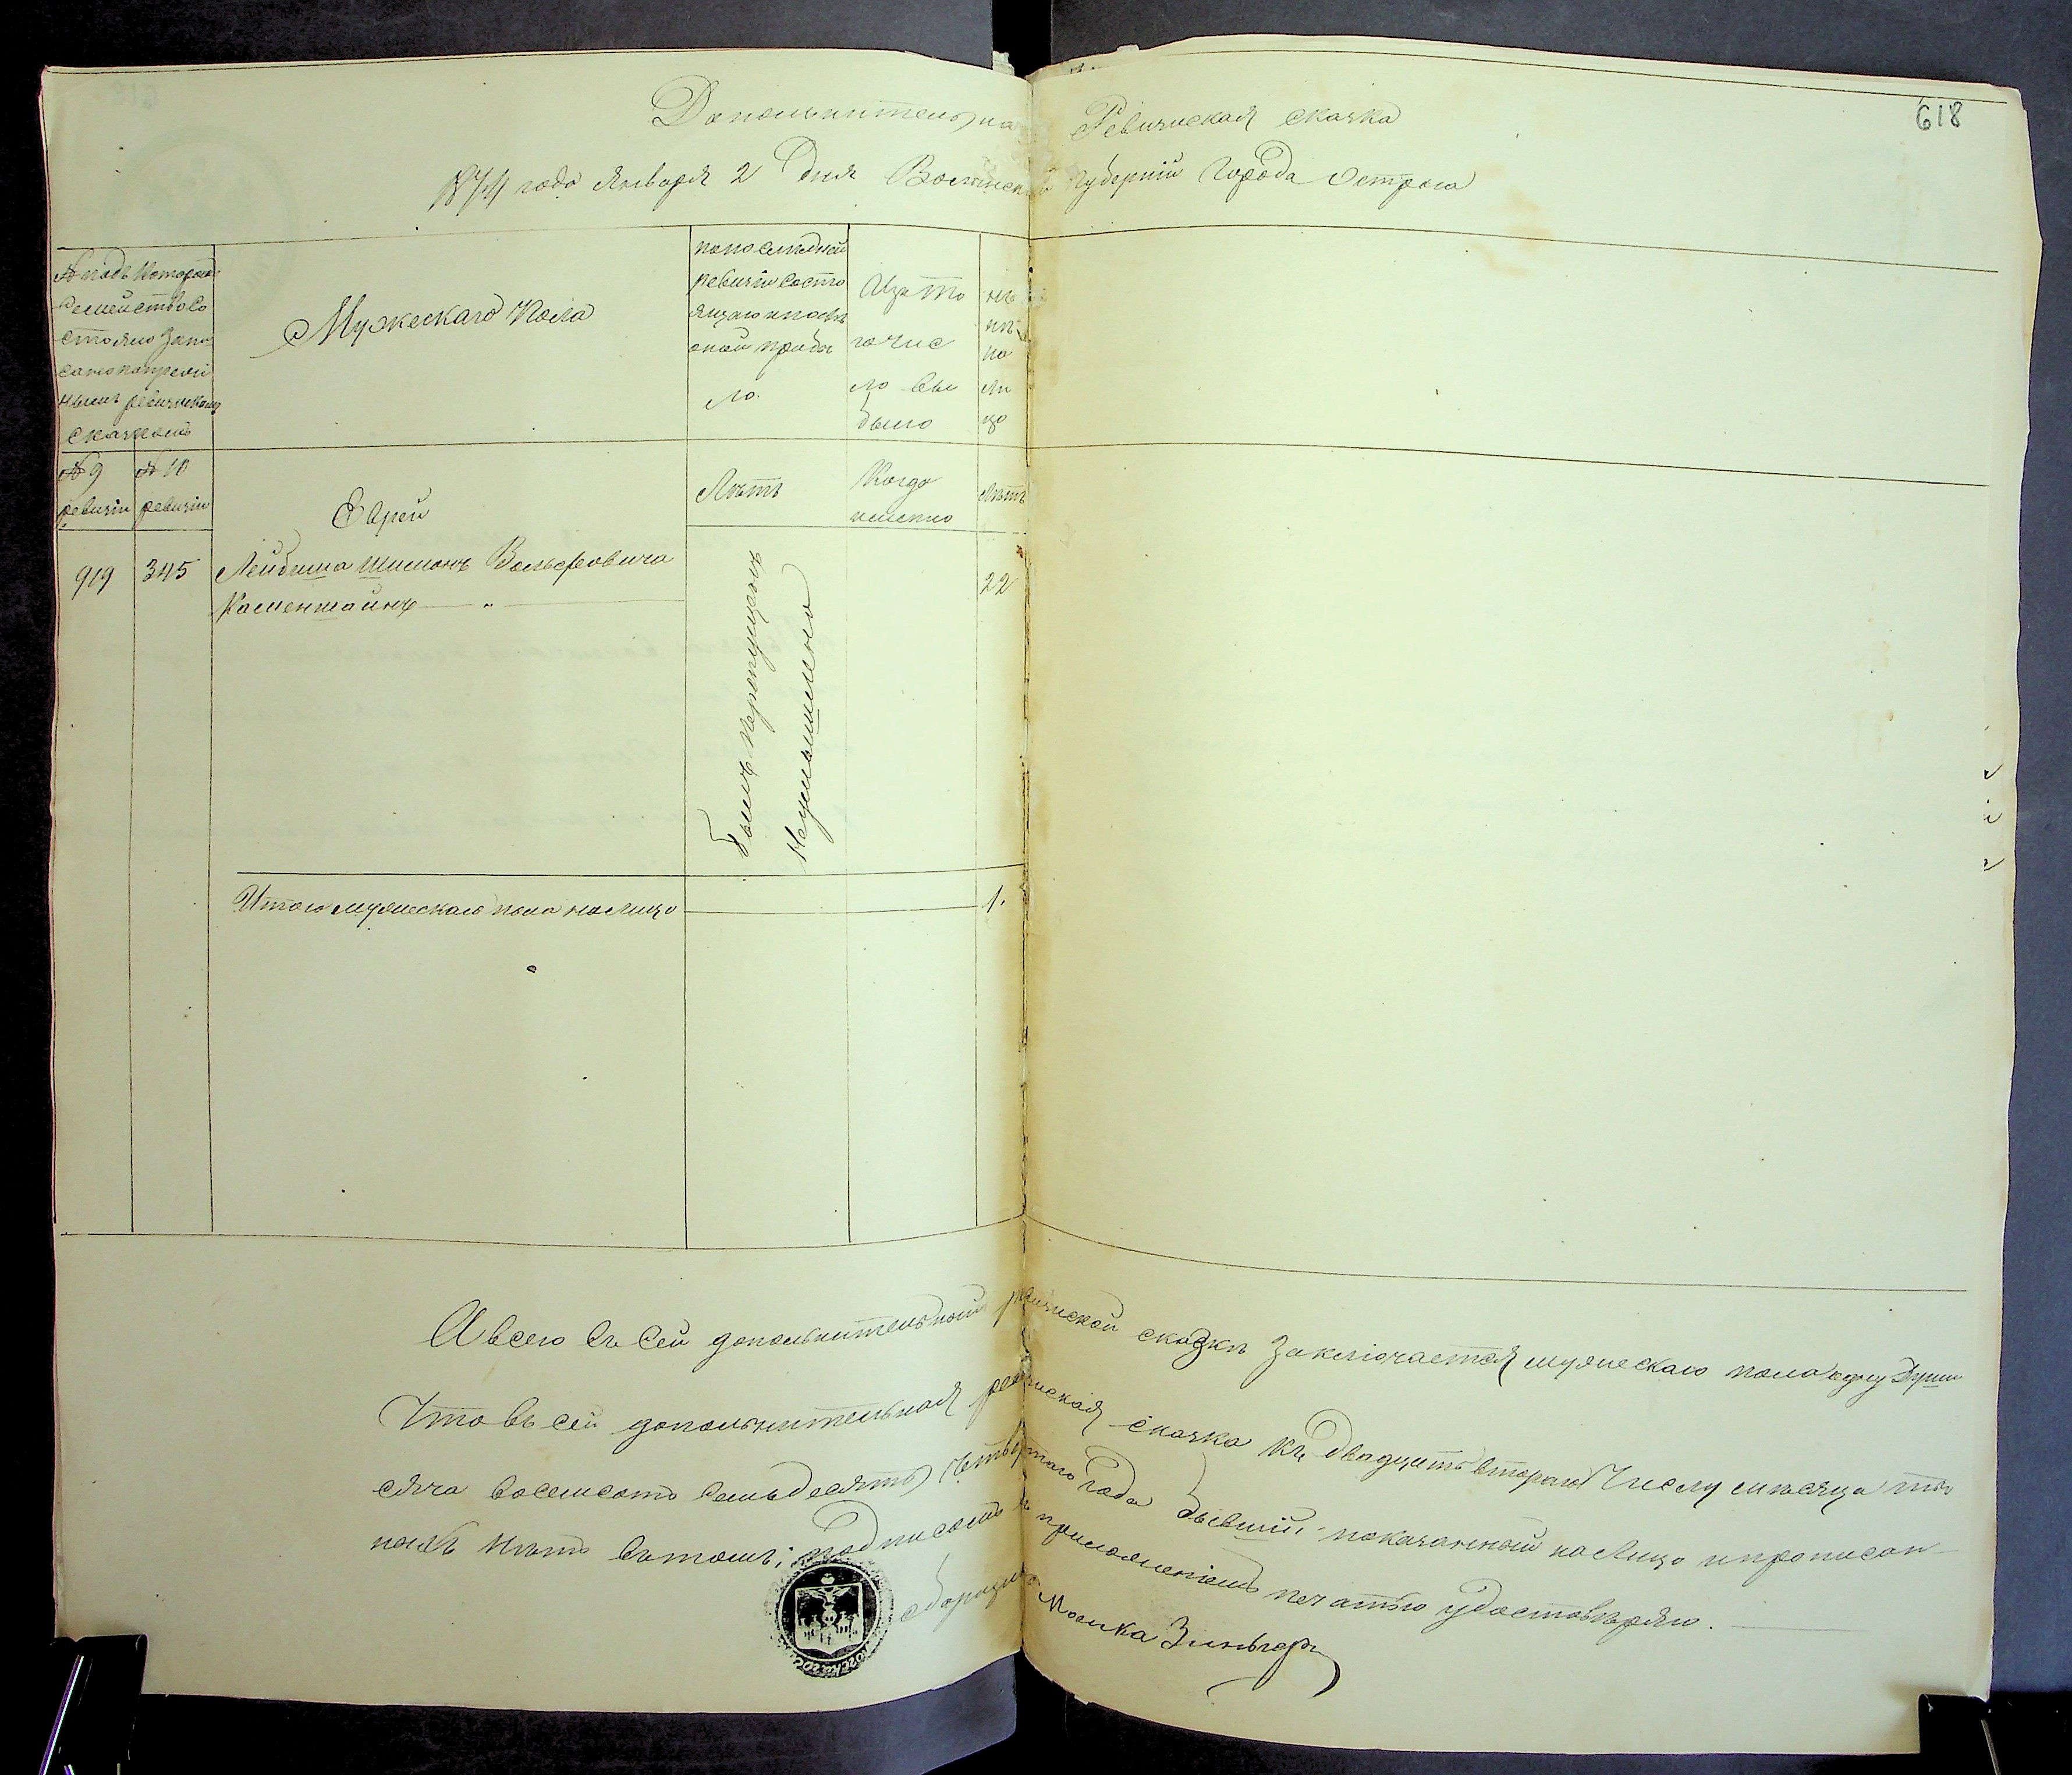 618
Дополнительна Ревизская сказка
1874 года Января 2 дня Волынской губернии Города Острога
№ подъ которымъ
семейство со
стояло запи
сано по преж
нымъ ревизскимъ
сказкамъ
Мужескаго Пола
по последней
ревизіи состо
ящаго и после
оной прибы
ло.
Изъ то
го чис
ло вы
было
ны
нѣ
на
ли
цо
№ 9
ревизіи
№ 10
ревизіи
Еврей
Лѣтъ
Когда
именно
Лѣтъ
919 345 Лейбиша Шимонъ Вольфовича
Каменштайнъ — " —
Былъ пропущенъ
Неумышлено
22
Итого мужескаго пола на лицо 1.
А всего въ сей дополнительной ревизской сказкѣ заключается мужескаго пола одну душу
Что въ сей дополнительная ревизская сказка къ двадцать второго числу месяца ты
сяча восемсотъ семьдесятъ четвертаго года бывшій показанный на лицо и прописан
ныхъ нѣтъ въ томъ; подписомъ и приложеніемъ печатью удостовѣряю.
Мошка Зинь